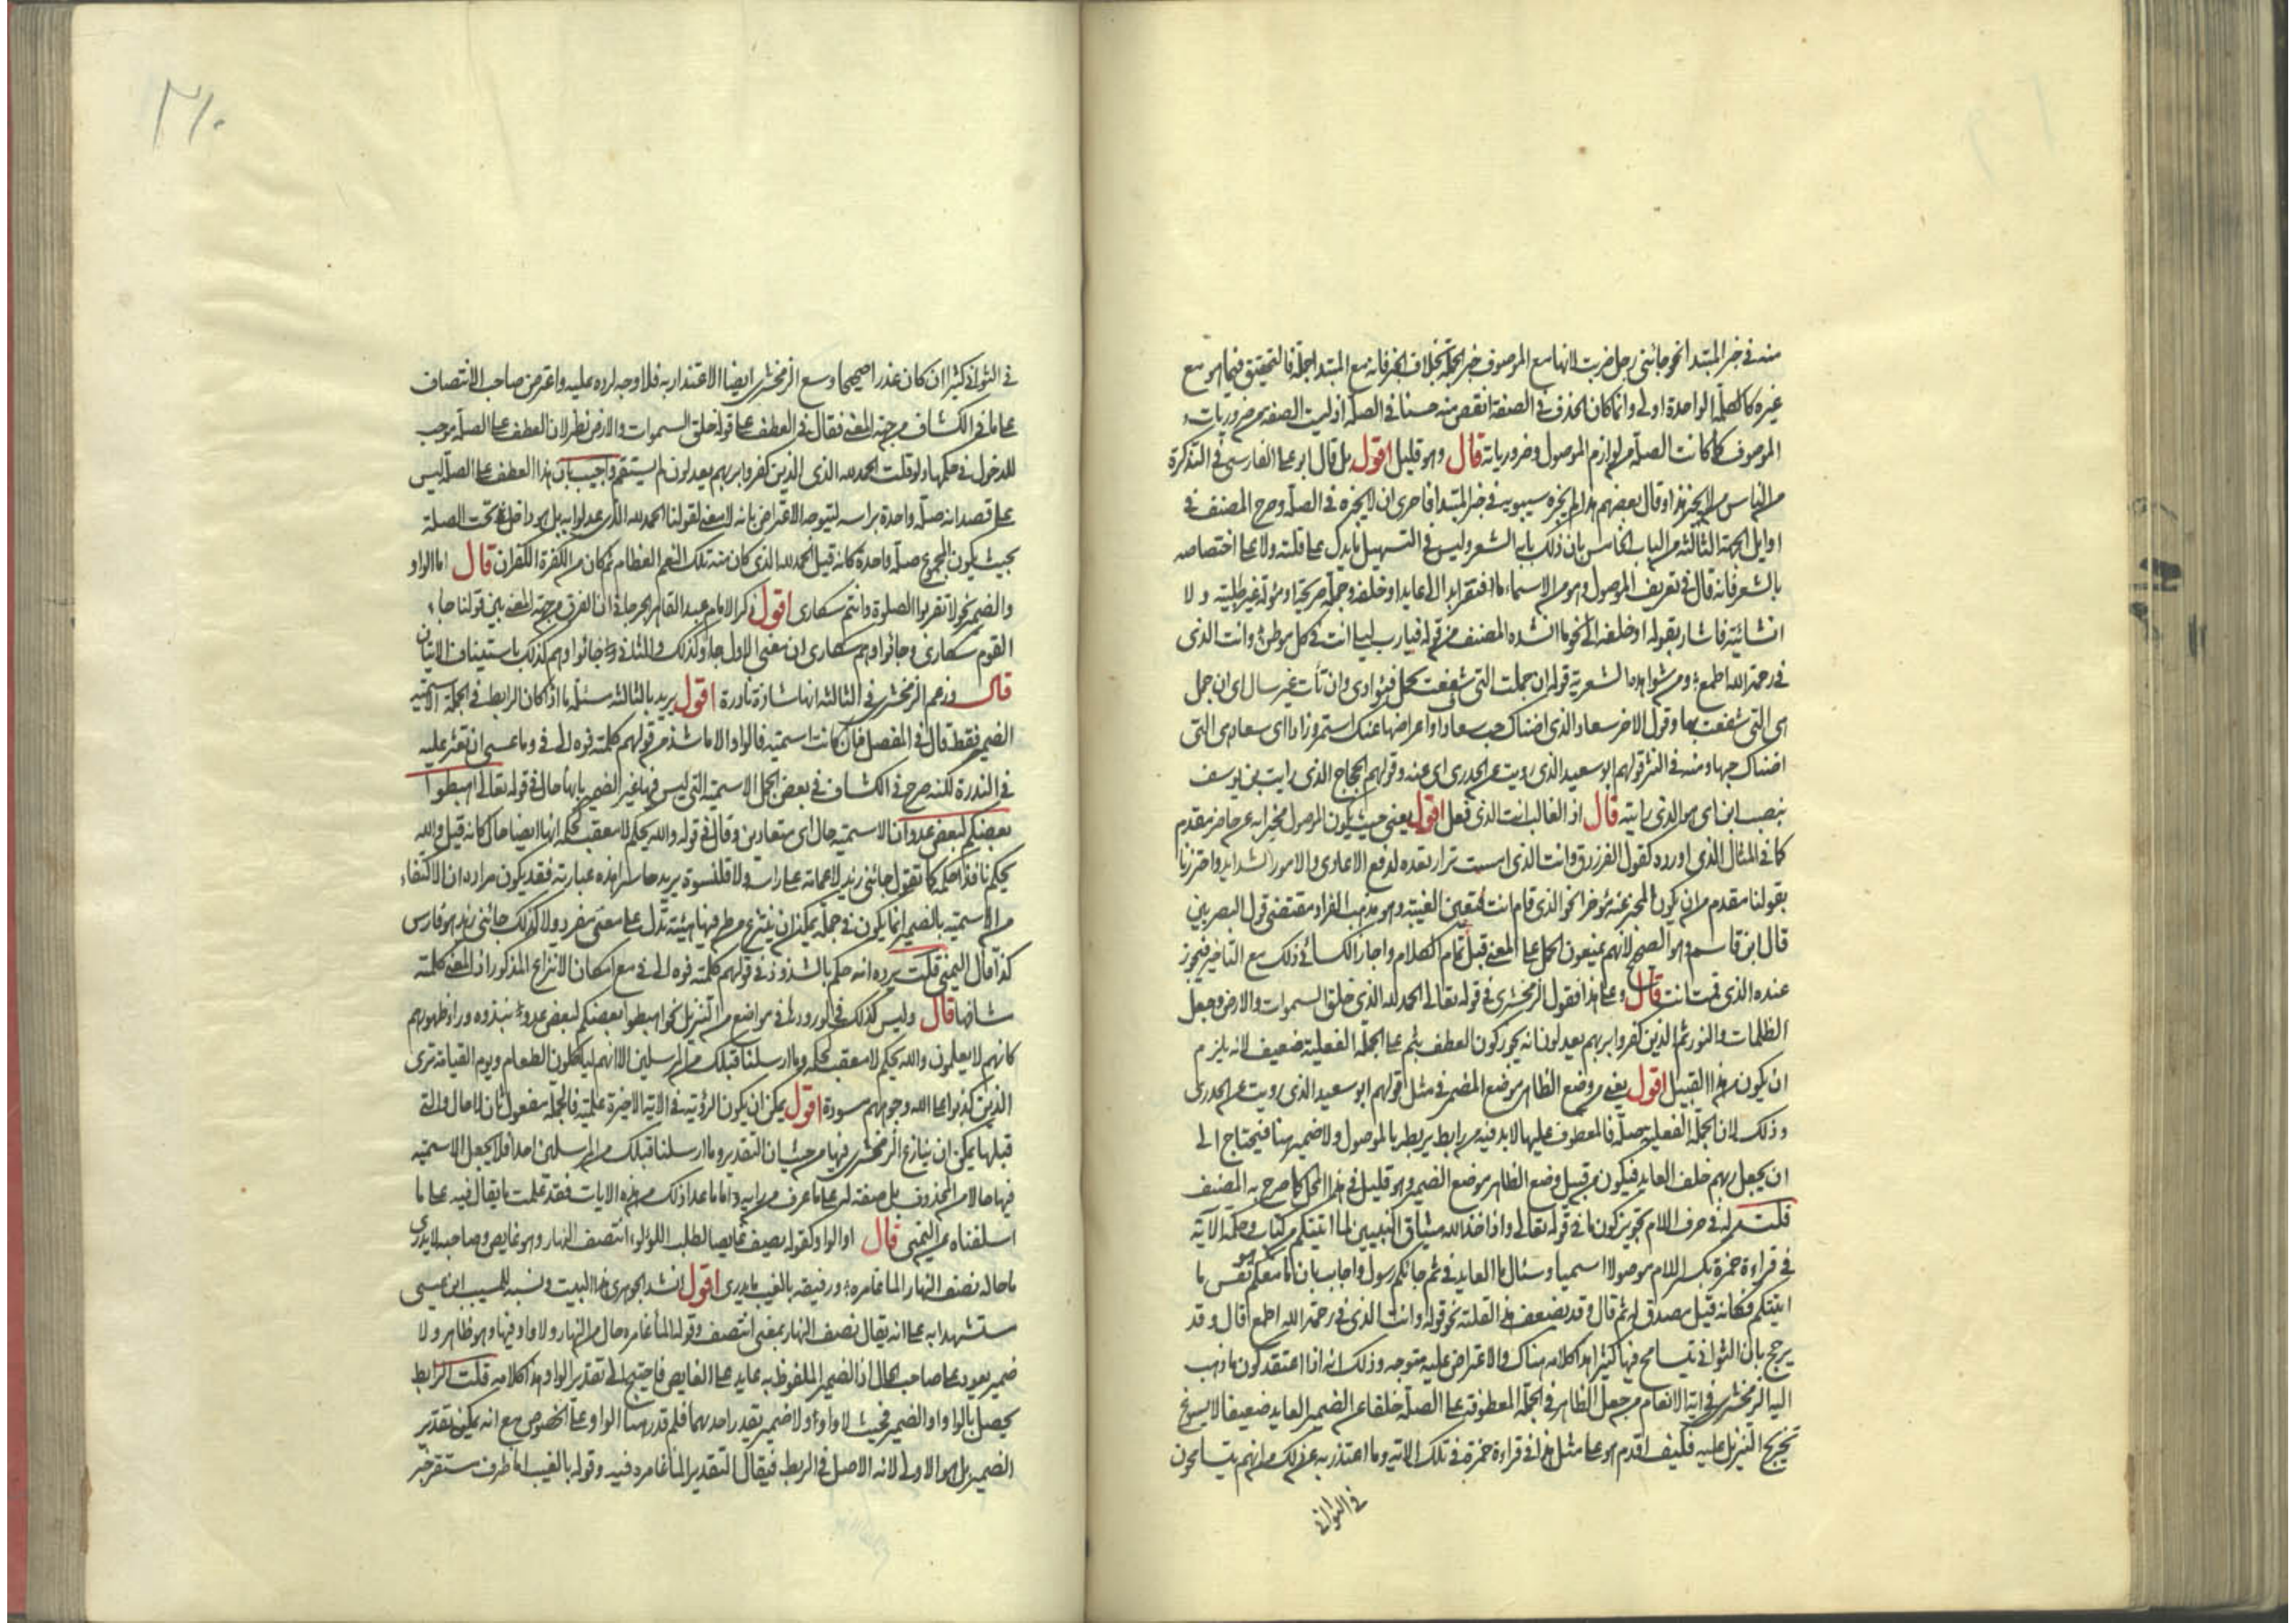 منه في خبر المبتدا نحو جائني رجل ضربت لانها مع الموصوف خبر الجملة بخلاف الخبر فانه مع المبتدا جملة فالتحقيق فيما هو مع
غيره كالكلمة الواحدة اولى وانما كان الحذف في الصفة انقص منه حسنا في الصلة اذ ليست الصفة من ضروريات
الموصوف كما كانت الصلة من لوازم الموصول وضرورياته قال وهو قليل اقول بل قال ابو علي الفارسي في التذكرة
من الناس من لا يجيز هذا وقال بعضهم هذا لم يجزه سيبويه في خبر المبتدا فاحرى ان لا يجيزه في الصلة وصرح المصنف في
اوايل الجهة الثالثة من الباب الخامس بان ذلك بابه الشعر وليس في التسهيل ما يدل على قلته ولا على اختصاصه
بالشعر فانه قال في تعريف الموصول وهو من الاسماء ما افتقر ابدا الى عايد او خلفه وجملة صريحة او مؤولة غير طلبية ولا
انشائية فاشار بقوله او خلفه الى نحو ما انشده المصنف من قوله فيا رب ليلى انت في كل موطن وانت الذي
في رحمة الله اطمع ومن شواهده الشعرية قوله ان جملت التي شغفت بجمل فؤادي وان نأت غير سال اي ان جمل
هي التي شغفت بها وقول الاخر سعاد الذي اضناك حب سعادا واعراضها عنك استمر وزادا اي سعاد هي التي
اضناك حبها ومنه في النثر قولهم ابو سعيد الذي رويت عن الخدري اي عنه وقولهم الحجاج الذي رايت بن يوسف
بنصب ابن اي هو الذي رايته قال اذ الغالب انت الذي فعل اقول يعني حيث يكون الموصول مخبرا به عن حاضر مقدم
كما في المثال الذي اورده كقول الفرزدق وانت الذي امست نزار تعده لدفع الاعادي والامور الشدايد واحترزنا
بقولنا مقدم من ان يكون المخبر عنه مؤخرا نحو الذي قام انت فتتعين الغيبة وهو مذهب الفراء ومقتضى قول البصريين
قال ابن قاسم وهو الصحيح لانهم يمنعون الحمل على المعنى قبل تمام الكلام واجاز الكسائي ذلك مع التاخير فيجوز
عنده الذي قمت انت قال وعلى هذا فقول الزمخشري في قوله تعالى الحمد لله الذي خلق السموات والارض وجعل
الظلمات والنور ثم الذين كفروا بربهم يعدلون انه يجوز كون العطف بثم على الجملة الفعلية ضعيف لانه يلزم
ان يكون من هذا القبيل اقول يعني من وضع الظاهر موضع المضمر في مثل قولهم ابو سعيد الذي رويت عن الخدري
وذلك لان الجملة الفعلية صلة فالمعطوف عليها لا بد فيه من رابط يربطه بالموصول ولا ضمير هنا فيحتاج الى
ان يجعل بربهم خلف العايد فيكون من قبيل وضع الظاهر موضع الضمير وهو قليل في هذا المحل كما صرح به المصنف
قلت مر له في حرف اللام تجويز كون ما في قوله تعالى واذ اخذ الله ميثاق النبيين لما اتيتكم من كتاب وحكمة الاية
في قراءة حمزة بكسر اللام موصولا اسميا وسئال ما العايد في ثم جائكم رسول واجاب بان ما معكم هو نفس ما
اتيتكم فكانه قيل مصدق له ثم قال وقد يضعف هذا لقلته نحو قوله وانت الذي في رحمة الله اطمع قال وقد
يرجح بان الثواني يتسامح فيها كثيرا هذا كلامه هناك والاعتراض عليه متوجه وذلك انه اذا اعتقد كون ما ذهب
اليه الزمخشري في اية الانعام من جعل الظاهر في الجملة المعطوفة على الصلة خلفا عن الضمير العايد ضعيفا لا يسوغ
تخريج التنزيل عليه فكيف اقدم هو على مثل هذا في قراءة حمزة في تلك الاية وما اعتذر به عن ذلك من انهم يتسامحون
في الثواني
٣١٠
في الثواني كثيرا ان كان عذرا صحيحا وسع الزمخشري ايضا الاعتذار به فلا وجه لرده عليه واعترض صاحب الانتصاف
على ما في الكشاف من جهة المعنى فقال في العطف على قوله خلق السموات والارض نظر لان العطف على الصلة يوجب
للدخول في حكمها ولو قلت الحمد لله الذي الذين كفروا بربهم يعدلون لم يستقم واجيب بان هذا العطف على الصلة ليس
على قصد انه صلة واحدة براسه ليتوجه الاعتراض بانه لا معنى لقولنا الحمد لله الذي عدلوا به بل هو داخل تحت الصلة
بحيث يكون المجموع صلة واحدة كانه قيل الحمد لله الذي كان منه تلك النعم العظام ثم كان من الكفرة الكفران قال اما الواو
والضمير نحو لا تقربوا الصلوة وانتم سكارى اقول ذكر الامام عبد القاهر الجرجاني ان الفرق من جهة المعنى بين قولنا جاء
القوم سكارى وجائوا وهم سكارى ان معنى الاول جاؤا كذلك والثاني جائوا وهم كذلك باستيناف الاتيان
قال وزعم الزمخشري في الثالثة انها شاذة نادرة اقول يريد بالثالثة مسئلة ما اذا كان الرابط في الجملة الاسمية
الضمير فقط قال في المفصل فان كانت اسمية فالواو الا ما شذ من قولهم كلمته فوه الى في وما عسى ان تعثر عليه
في الندرة لكنه صرح في الكشاف في بعض الجمل الاسمية التي ليس فيها غير الضمير بانها حال في قوله تعالى اهبطوا
بعضكم لبعض عدو ان الاسمية حال اي متعادين وقال في قوله والله يحكم لا معقب لحكمه انها ايضا حال كانه قيل والله
يحكم نافذا حكمه كما تقول جائني زيد لا عمامة على راسه ولا قلنسوة يريد حاسرا هذه عبارته فقد يكون مراده ان الاكتفاء
من الاسمية بالضمير انما يكون في جملة يمكن ان ينتزع من طرفيها هيئة تدل على معنى مفرد ولا كذلك جائني زيد هو فارس
كذا قال اليمني قلت يرده انه حكم بالشذوذ في قولهم كلمته فوه الى في مع امكان الانتزاع المذكور اذ المعنى كلمته
مشافها قال وليس كذلك لورودها في مواضع من التنزيل نحو اهبطوا بعضكم لبعض عدو نبذوه وراء ظهورهم
كانهم لا يعلمون والله يحكم لا معقب لحكمه وما ارسلنا قبلك من المرسلين الا انهم لياكلون الطعام ويوم القيامة ترى
الذين كذبوا على الله وجوههم مسودة اقول يمكن ان يكون الرؤية في الاية الاخيرة علمية فالجملة مفعول ثان لا حال والتي
قبلها يمكن ان ينازع الزمخشري فيها من حيث ان التقدير وما ارسلنا قبلك من المرسلين احدا فلا يجعل الاسمية
فيها حالا من المحذوف بل صفة له على ما عرف من رايه واما ما عدا ذلك من هذه الايات فقد علمت ما يقال فيه على ما
اسلفناه عن اليمني قال او الواو كقوله يصف غايصا لطلب اللؤلؤ انتصف النهار وهو غايص وصاحبه لا يدري
ما حاله نصف النهار الماء غامره ورفيقه بالغيب ما يدري اقول انشد الجوهري هذا البيت ونسبه للمسيب ابن عيسى
مستشهدا به على انه يقال نصف النهار بمعنى انتصف وقوله الماء غامره حال من النهار ولا واو فيها وهو ظاهر ولا
ضمير يعود على صاحب الحال اذ الضمير الملفوظ به عايد على الغايص فاحتيج الى تقدير الواو هذا كلامه قلت الرابط
يحصل بالواو او الضمير فحيث لا واو ولا ضمير يقدر احدهما فلم قدر هنا الواو على الخصوص مع انه يمكن تقدير
الضمير بل هو الاولى لانه الاصل في الربط فيقال التقدير الماء غامره فيه وقوله بالغيب اما ظرف مستقر خبر